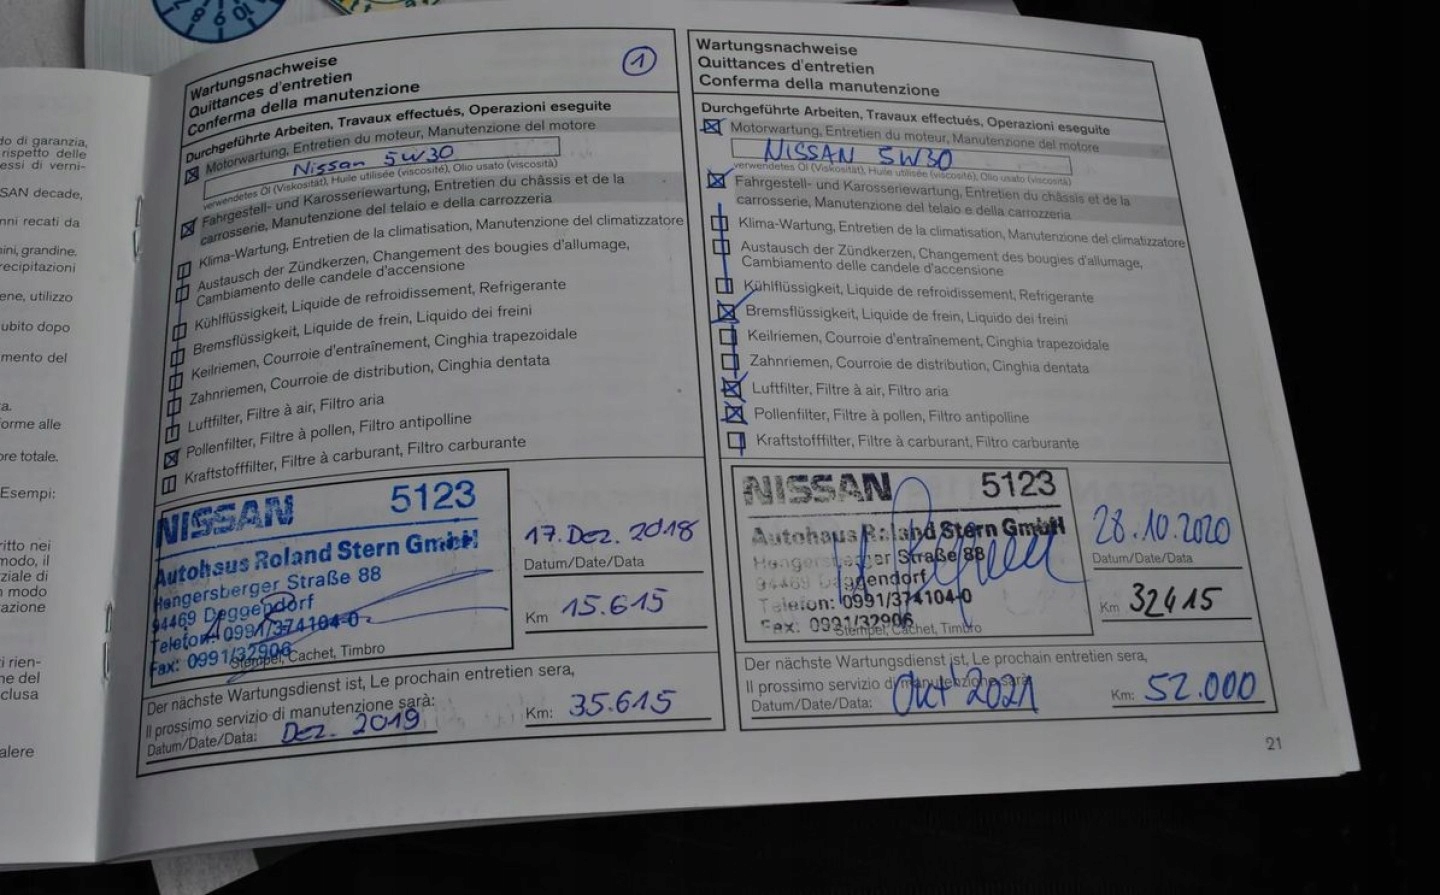 10
8
9
do di garanzia,
rispetto delle
essi di verni-
SAN decade,
nni recati da
ini, grandine.
recipitazioni
ene, utilizzo
ubito dopo
mento del
a.
orme alle
ore totale.
Esempi:
ritto nei
modo, il
ziale di
n modo
azione
i rien-
ne del
clusa
alere
Wartungsnachweise
Quittances d'entretien
Conferma della manutenzione
1
Durchgeführte Arbeiten, Travaux effectués, Operazioni eseguite
Motorwartung, Entretien du moteur, Manutenzione del motore
Nissan 5W30
verwendetes Öl (Viskosität), Huile utilisée (viscosité), Olio usato (viscosità)
Fahrgestell- und Karosseriewartung, Entretien du châssis et de la
carrosserie, Manutenzione del telaio e della carrozzeria
Klima-Wartung, Entretien de la climatisation, Manutenzione del climatizzatore
Austausch der Zündkerzen, Changement des bougies d'allumage,
Cambiamento delle candele d'accensione
Kühlflüssigkeit, Liquide de refroidissement, Refrigerante
Bremsflüssigkeit, Liquide de frein, Liquido dei freini
Keilriemen, Courroie d'entraînement, Cinghia trapezoidale
Zahnriemen, Courroie de distribution, Cinghia dentata
Luftfilter, Filtre à air, Filtro aria
Pollenfilter, Filtre à pollen, Filtro antipolline
Kraftstofffilter, Filtre à carburant, Filtro carburante
NISSAN 5123
Autohaus Roland Stern GmbH
Hengersberger Straße 88
94469 Deggendorf
Telefon: 0991/374104-0
Fax: 0991/32906
Stempel, Cachet, Timbro
17. Dez. 2018
Datum/Date/Data
Km 15.615
Der nächste Wartungsdienst ist, Le prochain entretien sera,
Il prossimo servizio di manutenzione sarà:
Datum/Date/Data: Dez. 2019
Km: 35.615
Wartungsnachweise
Quittances d'entretien
Conferma della manutenzione
Durchgeführte Arbeiten, Travaux effectués, Operazioni eseguite
Motorwartung, Entretien du moteur, Manutenzione del motore
NISSAN 5W30
verwendetes Öl (Viskosität), Huile utilisée (viscosité), Olio usato (viscosità)
Fahrgestell- und Karosseriewartung, Entretien du châssis et de la
carrosserie, Manutenzione del telaio e della carrozzeria
Klima-Wartung, Entretien de la climatisation, Manutenzione del climatizzatore
Austausch der Zündkerzen, Changement des bougies d'allumage,
Cambiamento delle candele d'accensione
Kühlflüssigkeit, Liquide de refroidissement, Refrigerante
Bremsflüssigkeit, Liquide de frein, Liquido dei freini
Keilriemen, Courroie d'entraînement, Cinghia trapezoidale
Zahnriemen, Courroie de distribution, Cinghia dentata
Luftfilter, Filtre à air, Filtro aria
Pollenfilter, Filtre à pollen, Filtro antipolline
Kraftstofffilter, Filtre à carburant, Filtro carburante
NISSAN 5123
Autohaus Roland Stern GmbH
Hengersberger Straße 88
94469 Deggendorf
Telefon: 0991/374104-0
Fax: 0991/32906
Stempel, Cachet, Timbro
28.10.2020
Datum/Date/Data
Km 32415
Der nächste Wartungsdienst ist, Le prochain entretien sera,
Il prossimo servizio di manutenzione sarà:
Datum/Date/Data: Okt 2021
Km: 52.000
21